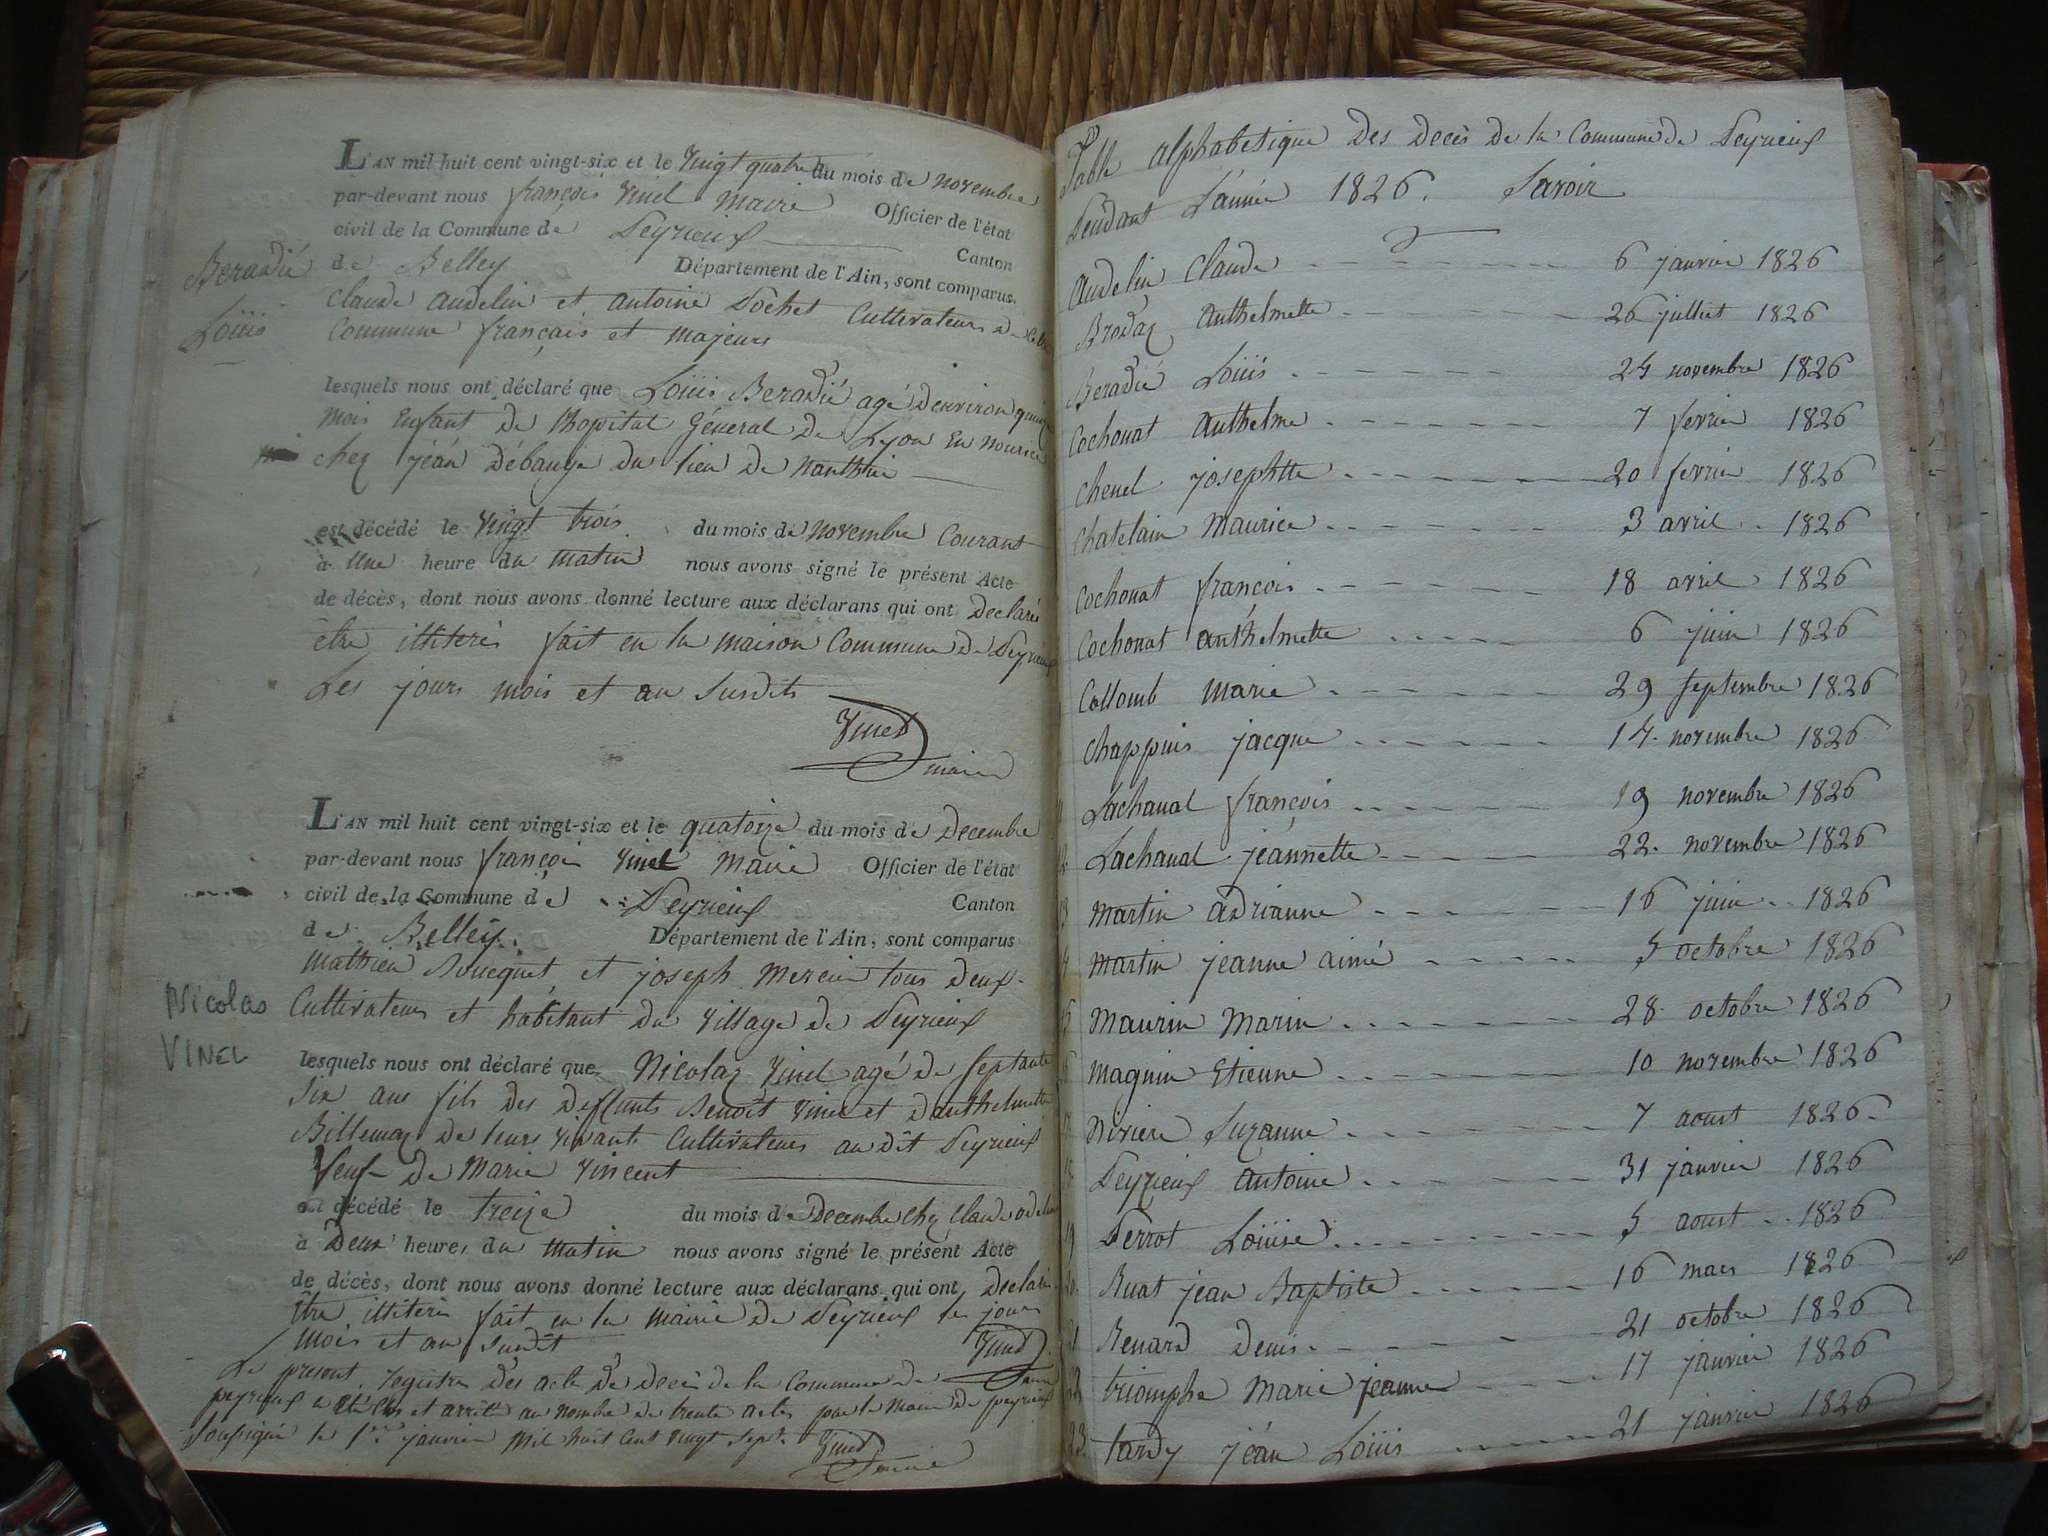 L'AN mil huit cent vingt-six et le Vingt quatre du mois de novembre
par-devant nous françois Vinel Maire Officier de l'état
civil de la Commune de Peyrieux Canton
de Belley Département de l'Ain, sont comparus
Beradié
Loüis
Claude audelin et antoine Pochet Cultivateurs
Commune français et majeurs
lesquels nous ont déclaré que Loüis Beradié agé d'environ quinze
mois Enfant de Lhopital Géneral de Lyon En nourice
chez jean débauge du lieu de nanthui
est décédé le Vingt trois du mois de novembre Courant
à Une heure du matin nous avons signé le présent Acte
de décès, dont nous avons donné lecture aux déclarans qui ont Declaré
être illiterés fait en la maison Commune de Peyrieux
Les jours mois et an Susdits
Vinel
maire
L'AN mil huit cent vingt-six et le quatorze du mois de Decembre
par-devant nous françois Vinel Maire Officier de l'état
civil de la Commune de Peyrieux Canton
de Belley Département de l'Ain, sont comparus
Mathieu et joseph Mercier tous deux
Cultivateurs et habitant du Village de Peyrieux
Nicolas
VINEL
lesquels nous ont déclaré que Nicolas Vinel agé de Septante
Six ans fils des deffunts Benoît Vinel et d'anthelmette
Billemaz de leurs vivants Cultivateurs au dit Peyrieux
Veuf de Marie Vincent
est décédé le treize du mois de Decembre chez Claude
à Deux heures du Matin nous avons signé le présent Acte
de décès, dont nous avons donné lecture aux déclarans qui ont
être illiterés fait en la Mairie de Peyrieux les jours
mois et an Susdit
Vinel
Maire
Le present registre des acte de Decès de la Commune de
peyrieux a été clos et arrêté au nombre de trente actes par le Maire de peyrieux
Soussigné le 1er janvier mil huit Cent Vingt Sept. Vinel
Maire
Table alphabetique Des Decès de la Commune de Peyrieux
Pendant L'année 1826. Savoir
audelin Claude 6 janvier 1826
Brodaz Anthelmette 26 julliet 1826
Beradié Loüis 24 novembre 1826
Cochonat Anthelme 7 fevrier 1826
Chenel josephtte 20 fevrier 1826
Chatelain Maurice 3 avril 1826
Cochonat françois 18 avril 1826
Cochonat anthelmette 6 juin 1826
Collomb marie 29 septembre 1826
Chappuis jacque 14 novembre 1826
Lachanal françois 19 novembre 1826
Lachanal jeannette 22 novembre 1826
13 Martin Adrianne 16 juin 1826
Martin jeanne aimé 5 octobre 1826
Maurin Marin 28 octobre 1826
Magnin Etienne 10 novembre 1826
Nivière Suzanne 7 aoust 1826
18 Peyrieux antoine 31 janvier 1826
19 Perrot Loüise 5 aoust 1826
20. Ruat jean Baptiste 16 mars 1826
21 Renard Denis 21 octobre 1826
22 triomphe Marie jeanne 17 janvier 1826
23. tardy jean Loüis 21 janvier 1826